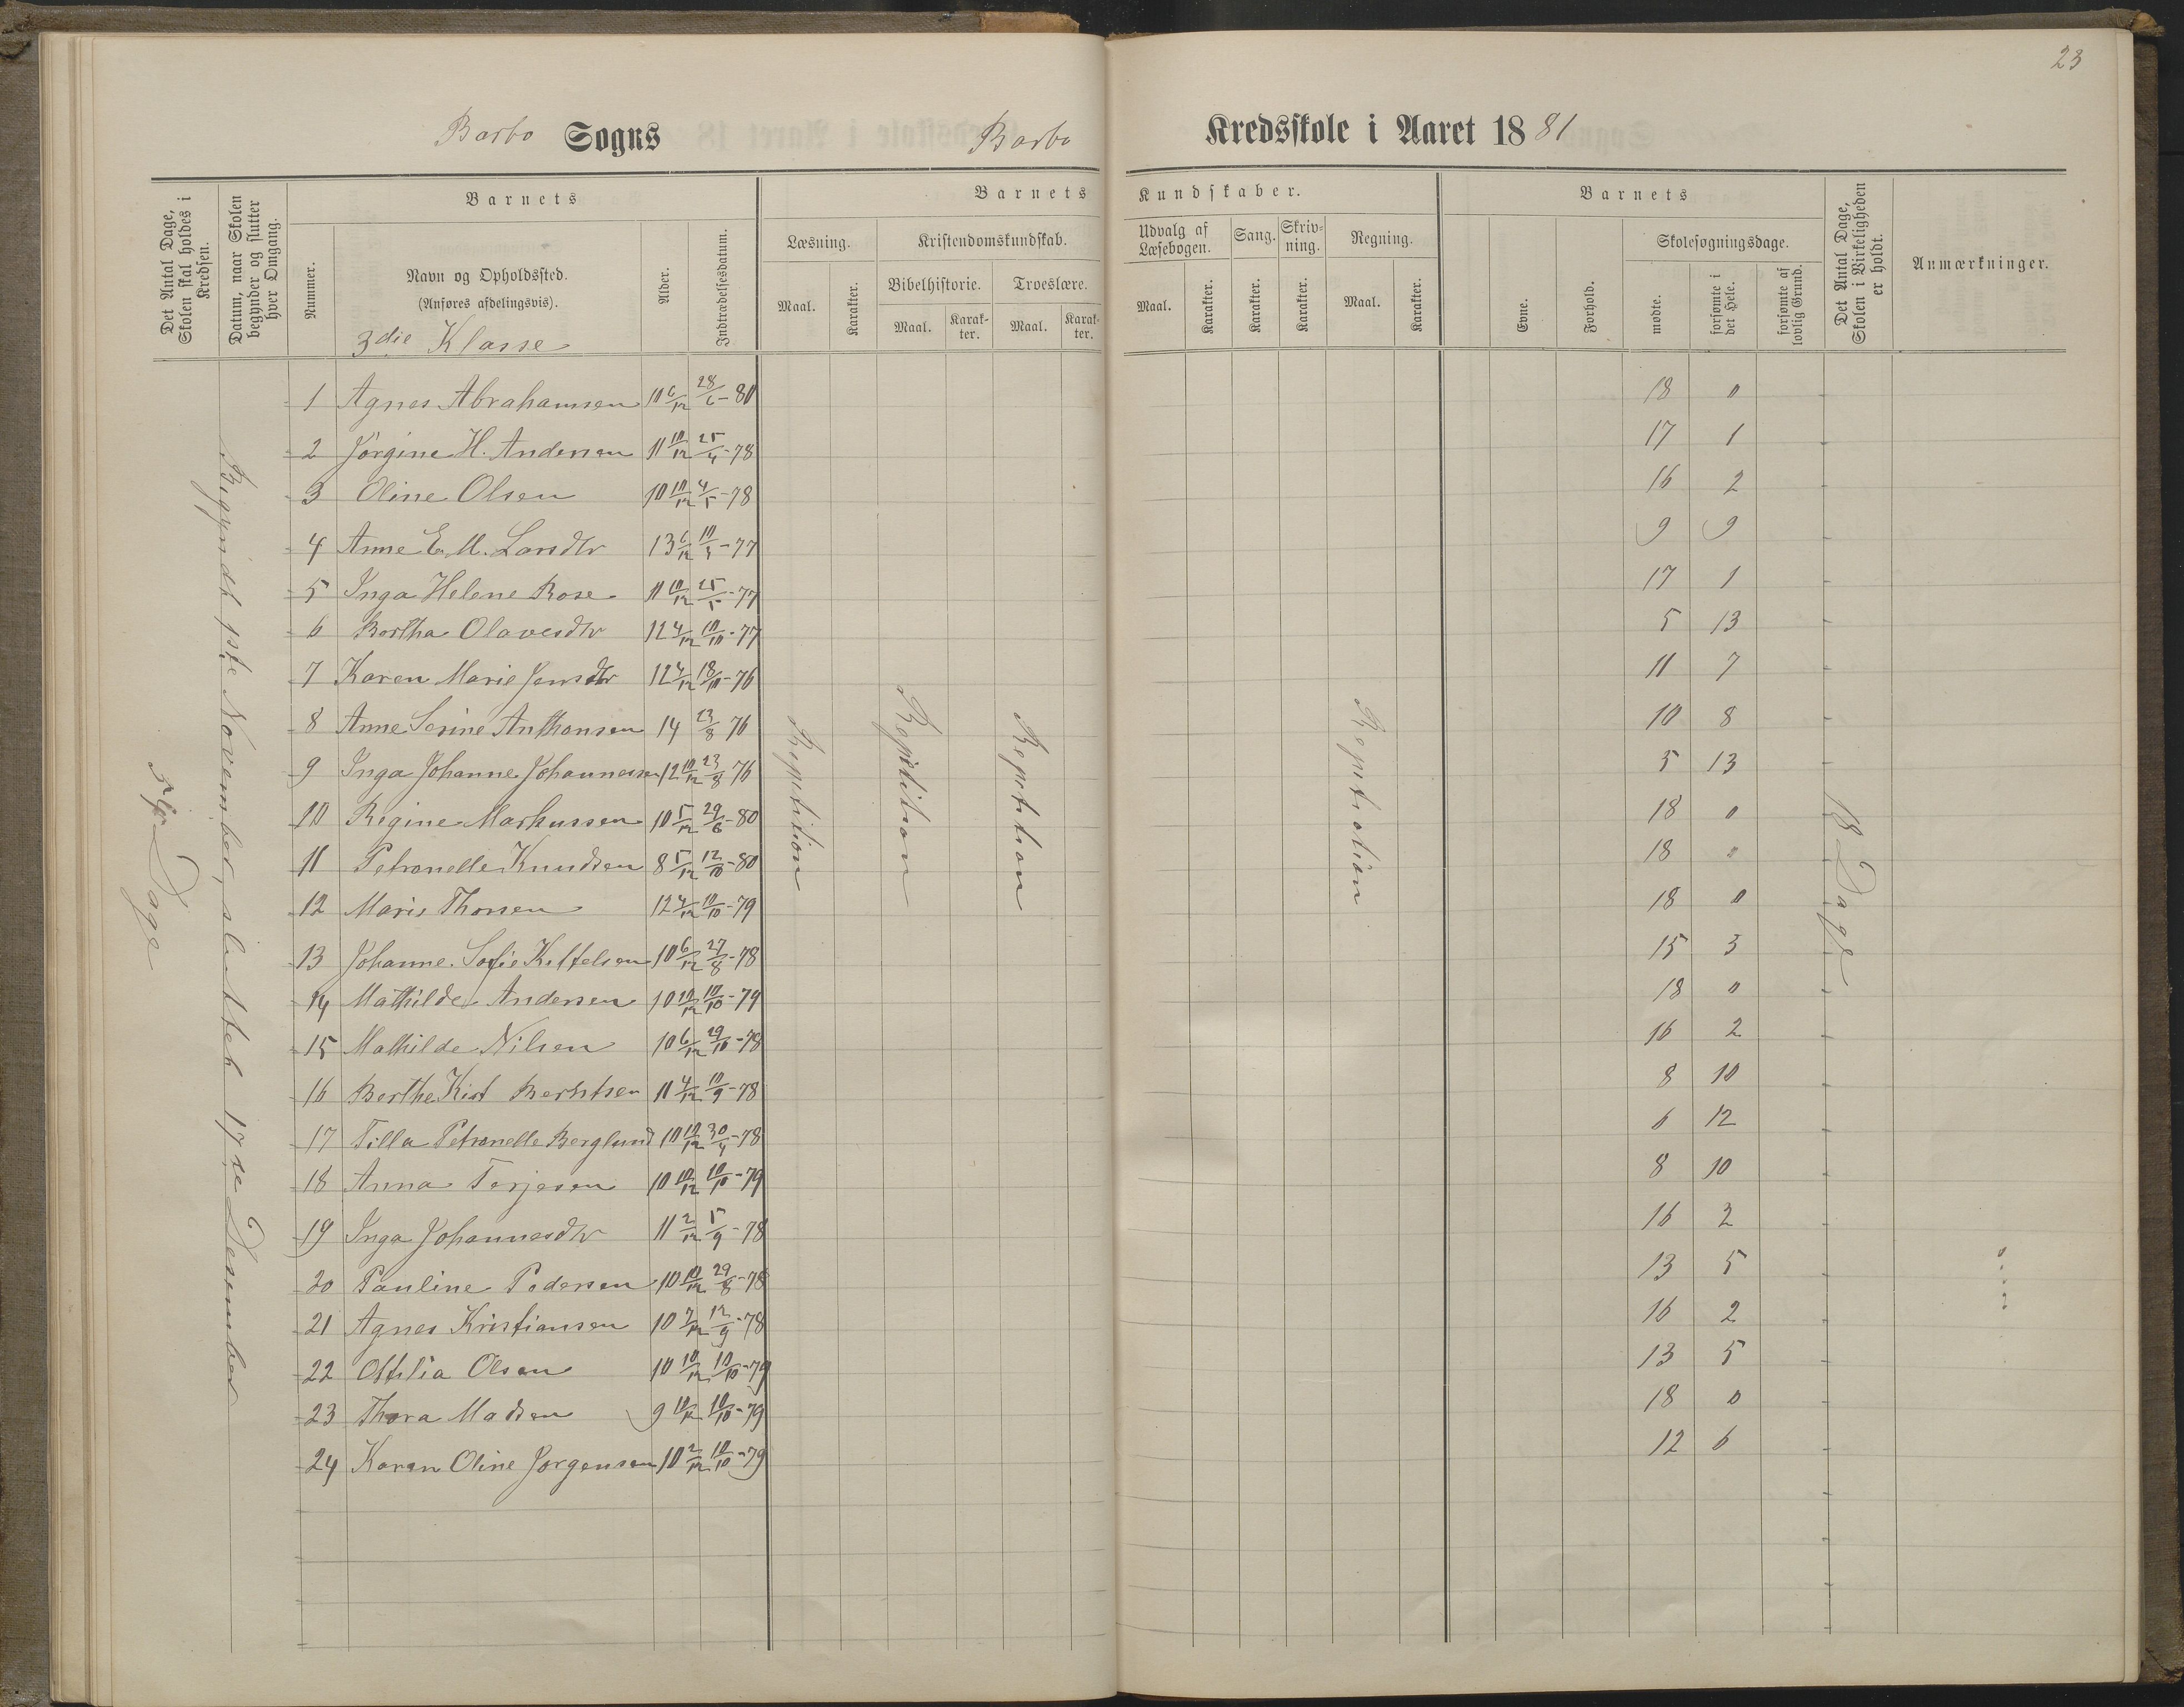 23
Barbo Sogns Barbo Kredsskole i Aaret 1881
Det Antal Dage, Skolen skal holdes i Kredsen.
Datum, naar Skolen begynder og slutter hver Omgang.
Barnets
Nummer.
Navn og Opholdssted.
(Anføres afdelingsvis).
3die Klasse
Alder.
Indtrædelsesdatum.
Barnets Kundskaber.
Læsning.
Maal.
Karakter.
Kristendomskundskab.
Bibelhistorie.
Maal.
Karak-
ter.
Troeslære.
Maal.
Karak-
ter.
Udvalg af
Læsebogen.
Maal.
Karakter.
Sang.
Karakter.
Skriv-
ning.
Karakter.
Regning.
Maal.
Karakter.
Barnets
Evne.
Forhold.
Skolesøgningsdage.
mødte.
forsømte i
det Hele.
forsømte af
lovlig Grund.
Det Antal Dage,
Skolen i Virkeligheden
er holdt.
Anmærkninger.
1 Agnes Abrahamsen 10 6/12 28/6-80 18 0
2 Jørgine H. Andersen 11 10/12 25/4-78 17 1
3 Oline Olsen 10 10/12 4/5-78 16 2
4 Anne E. M. Larsdtr 13 6/12 77 9 9
5 Inga Helene Rose 11 10/12 25/5-77 17 1
6 Bertha Olavesdtr 12 4/12 10/10-77 5 13
7 Karen Marie Jensdtr 12 4/12 18/10-76 11 7
8 Anne Serine Anthonsen 14 23/8 76 10 8
9 Inga Johanne Johannessen 12 10/12 23/8 76 5 13
10 Regine Markussen 10 5/12 29/6-80 18 0
11 Petronelle Knudsen 8 5/12 12/10-80 18 0
12 Maris Thorsen 12 4/12 10/10-79 18 0
13 Johanne Sofie Kittelsen 10 6/12 27/8-78 15 3
14 Mathilde Andersen 10 10/12 10/10-79 18 0
15 Mathilde Nilsen 10 6/12 29/10-78 16 2
16 Berthe Kist Berntsen 11 4/12 10/9-78 8 10
17 Tilla Petronelle Berglund 10 10/12 30/4-78 6 12
18 Anna Terjesen 10 10/12 10/10-79 8 10
19 Inga Johannesdtr 11 2/12 5/9-78 16 2
20 Pauline Pedersen 10 10/12 29/8-78 13 5
21 Agnes Kristiansen 10 7/12 12/9-78 16 2
22 Ottilia Olsen 10 10/12 10/10-79 13 5
23 Thora Madsen 9 10/12 10/10-79 18 0
24 Karen Oline Jørgensen 10 2/12 10/10-79 12 6
Dage
Begyndt 1ste November, sluttet 17de Desember
Repetition
Repetition
Repetition
Repetition
18 Dage